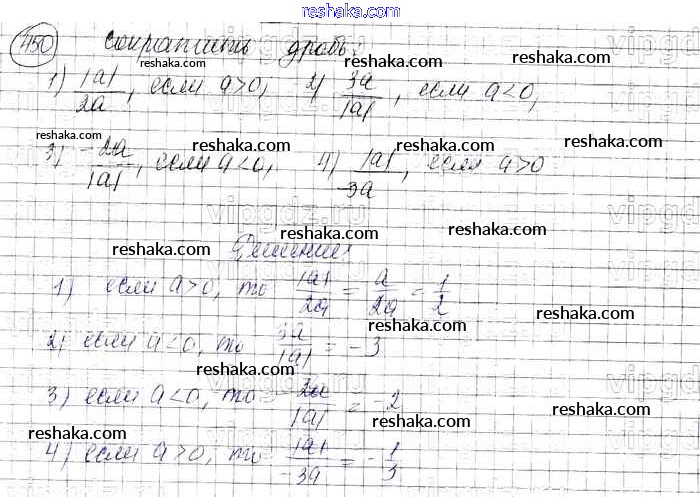 reshaka.com
450 сократить дробь:
reshaka.com reshaka.com
1) |a|/2a, если a>0, 2) 3a/|a|, если a<0,
reshaka.com reshaka.com
3) -2a/|a|, если a<0, 4) |a|/-3a, если a>0
reshaka.com reshaka.com
reshaka.com reshaka.com
Решение:
1) если a>0, то |a|/2a = a/2a = 1/2
reshaka.com reshaka.com
2) если a<0, то 3a/|a| = -3
reshaka.com reshaka.com
3) если a<0, то -2a/|a| = -2
reshaka.com reshaka.com
4) если a>0, то |a|/-3a = -1/3
reshaka.com